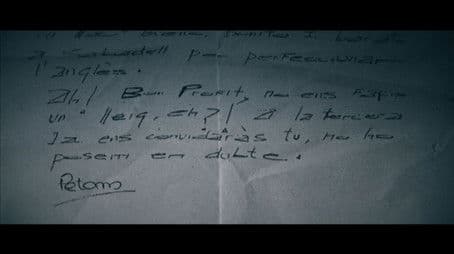 a Sabadell per perfeccionar
l'anglès.
Ah! Bon Profit, no ens facis
un lleig, eh?! A la tercera
ja ens convidaràs tu, no ho
posem en dubte.
Petons